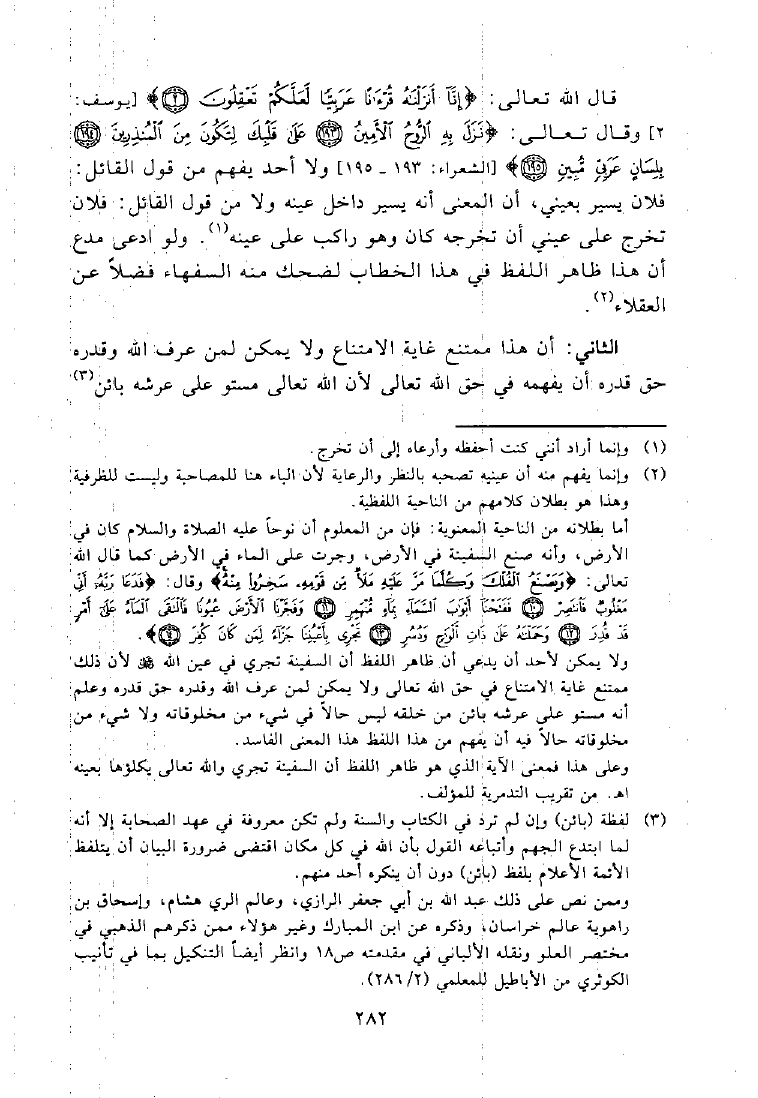 قال الله تعالى: ﴿إِنَّا أَنزَلْنَٰهُ قُرْءَٰنًا عَرَبِيًّا لَّعَلَّكُمْ تَعْقِلُونَ ۝٢﴾ [يوسف:
٢] وقال تعالى: ﴿نَزَلَ بِهِ ٱلرُّوحُ ٱلْأَمِينُ ۝١٩٣ عَلَىٰ قَلْبِكَ لِتَكُونَ مِنَ ٱلْمُنذِرِينَ ۝١٩٤
بِلِسَانٍ عَرَبِيٍّ مُّبِينٍ ۝١٩٥﴾ [الشعراء: ١٩٣ ـ ١٩٥] ولا أحد يفهم من قول القائل:
فلان يسير بعيني، أن المعنى أنه يسير داخل عينه ولا من قول القائل: فلان
تخرج على عيني أن تخرجه كان وهو راكب على عينه(١). ولو ادعى مدع
أن هذا ظاهر اللفظ في هذا الخطاب لضحك منه السفهاء فضلاً عن
العقلاء(٢).
الثاني: أن هذا ممتنع غاية الامتناع ولا يمكن لمن عرف الله وقدره
حق قدره أن يفهمه في حق الله تعالى لأن الله تعالى مستو على عرشه بائن(٣)
(١) وإنما أراد أنني كنت أحفظه وأرعاه إلى أن تخرج.
(٢) وإنما يفهم منه أن عينيه تصحبه بالنظر والرعاية لأن الباء هنا للمصاحبة وليست للظرفية
وهذا هو بطلان كلامهم من الناحية اللفظية.
أما بطلانه من الناحية المعنوية: فإن من المعلوم أن نوحاً عليه الصلاة والسلام كان في
الأرض، وأنه صنع السفينة في الأرض، وجرت على الماء في الأرض كما قال الله
تعالى: ﴿وَيَصْنَعُ ٱلْفُلْكَ وَكُلَّمَا مَرَّ عَلَيْهِ مَلَأٌ مِّن قَوْمِهِۦ سَخِرُوا۟ مِنْهُ﴾ وقال: ﴿فَدَعَا رَبَّهُۥٓ أَنِّى
مَغْلُوبٌ فَٱنتَصِرْ ۝١٠ فَفَتَحْنَآ أَبْوَٰبَ ٱلسَّمَآءِ بِمَآءٍ مُّنْهَمِرٍ ۝١١ وَفَجَّرْنَا ٱلْأَرْضَ عُيُونًا فَٱلْتَقَى ٱلْمَآءُ عَلَىٰٓ أَمْرٍ
قَدْ قُدِرَ ۝١٢ وَحَمَلْنَٰهُ عَلَىٰ ذَاتِ أَلْوَٰحٍ وَدُسُرٍ ۝١٣ تَجْرِى بِأَعْيُنِنَا جَزَآءً لِّمَن كَانَ كُفِرَ ۝١٤﴾.
ولا يمكن لأحد أن يدعي أن ظاهر اللفظ أن السفينة تجري في عين الله ﷻ لأن ذلك
ممتنع غاية الامتناع في حق الله تعالى ولا يمكن لمن عرف الله وقدره حق قدره وعلم
أنه مستو على عرشه بائن من خلقه ليس حالاً في شيء من مخلوقاته ولا شيء من
مخلوقاته حالاً فيه أن يفهم من هذا اللفظ هذا المعنى الفاسد.
وعلى هذا فمعنى الآية الذي هو ظاهر اللفظ أن السفينة تجري والله تعالى يكلؤها بعينه
اهـ. من تقريب التدمرية للمؤلف.
(٣) لفظة (بائن) وإن لم ترد في الكتاب والسنة ولم تكن معروفة في عهد الصحابة إلا أنه
لما ابتدع الجهم وأتباعه القول بأن الله في كل مكان اقتضى ضرورة البيان أن يتلفظ
الأئمة الأعلام بلفظ (بائن) دون أن ينكره أحد منهم.
وممن نص على ذلك عبد الله بن أبي جعفر الرازي، وعالم الري هشام، وإسحاق بن
راهوية عالم خراسان، وذكره عن ابن المبارك وغير هؤلاء ممن ذكرهم الذهبي في
مختصر العلو ونقله الألباني في مقدمته ص١٨ وانظر أيضاً التنكيل بما في تأنيب
الكوثري من الأباطيل للمعلمي (٢٨٦/٢).
٢٨٢